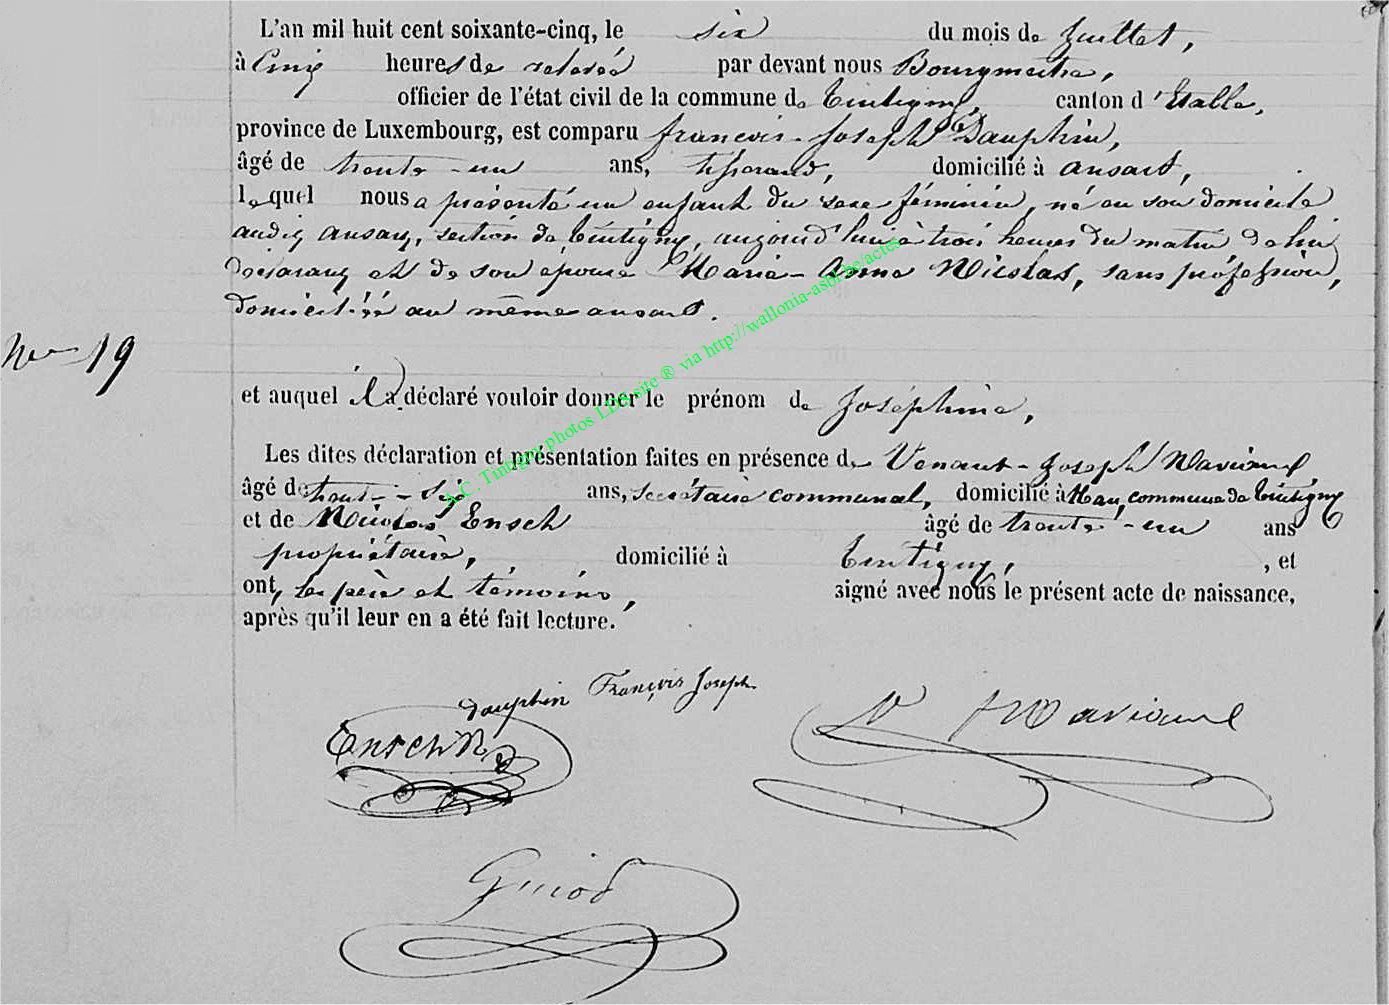 L'an mil huit cent soixante-cinq, le six du mois de Juillet,
à Cinq heures de relevée par devant nous Bourgmestre,
officier de l'état civil de la commune de Tintigny, canton d'Etalle,
province de Luxembourg, est comparu françois-Joseph Dauphin,
âgé de trente-un ans, tisserand, domicilié à ansart,
lequel nous a présenté un enfant du sexe féminin, né en son domicile
audit ansart, section de Tintigny, aujourd'hui à trois heures du matin de lui
déclarant et de son épouse Maria-Anne Nicolas, sans profession,
domiciliée au même ansart.
No 19
et auquel il a déclaré vouloir donner le prénom de Joséphine,
Les dites déclaration et présentation faites en présence de Venant-Joseph Naviaux
âgé de trente-six ans, secrétaire communal, domicilié à Han, commune de Tintigny
et de Nicolas Ensch âgé de trente-un ans
propriétaire, domicilié à Tintigny, , et
ont, les père et témoins, signé avec nous le présent acte de naissance,
après qu'il leur en a été fait lecture.
dauphin François Joseph
Ensch N
Guiod
A.C. Tintigny photos LDS site ® via http://wallonia-asbl.be/actes